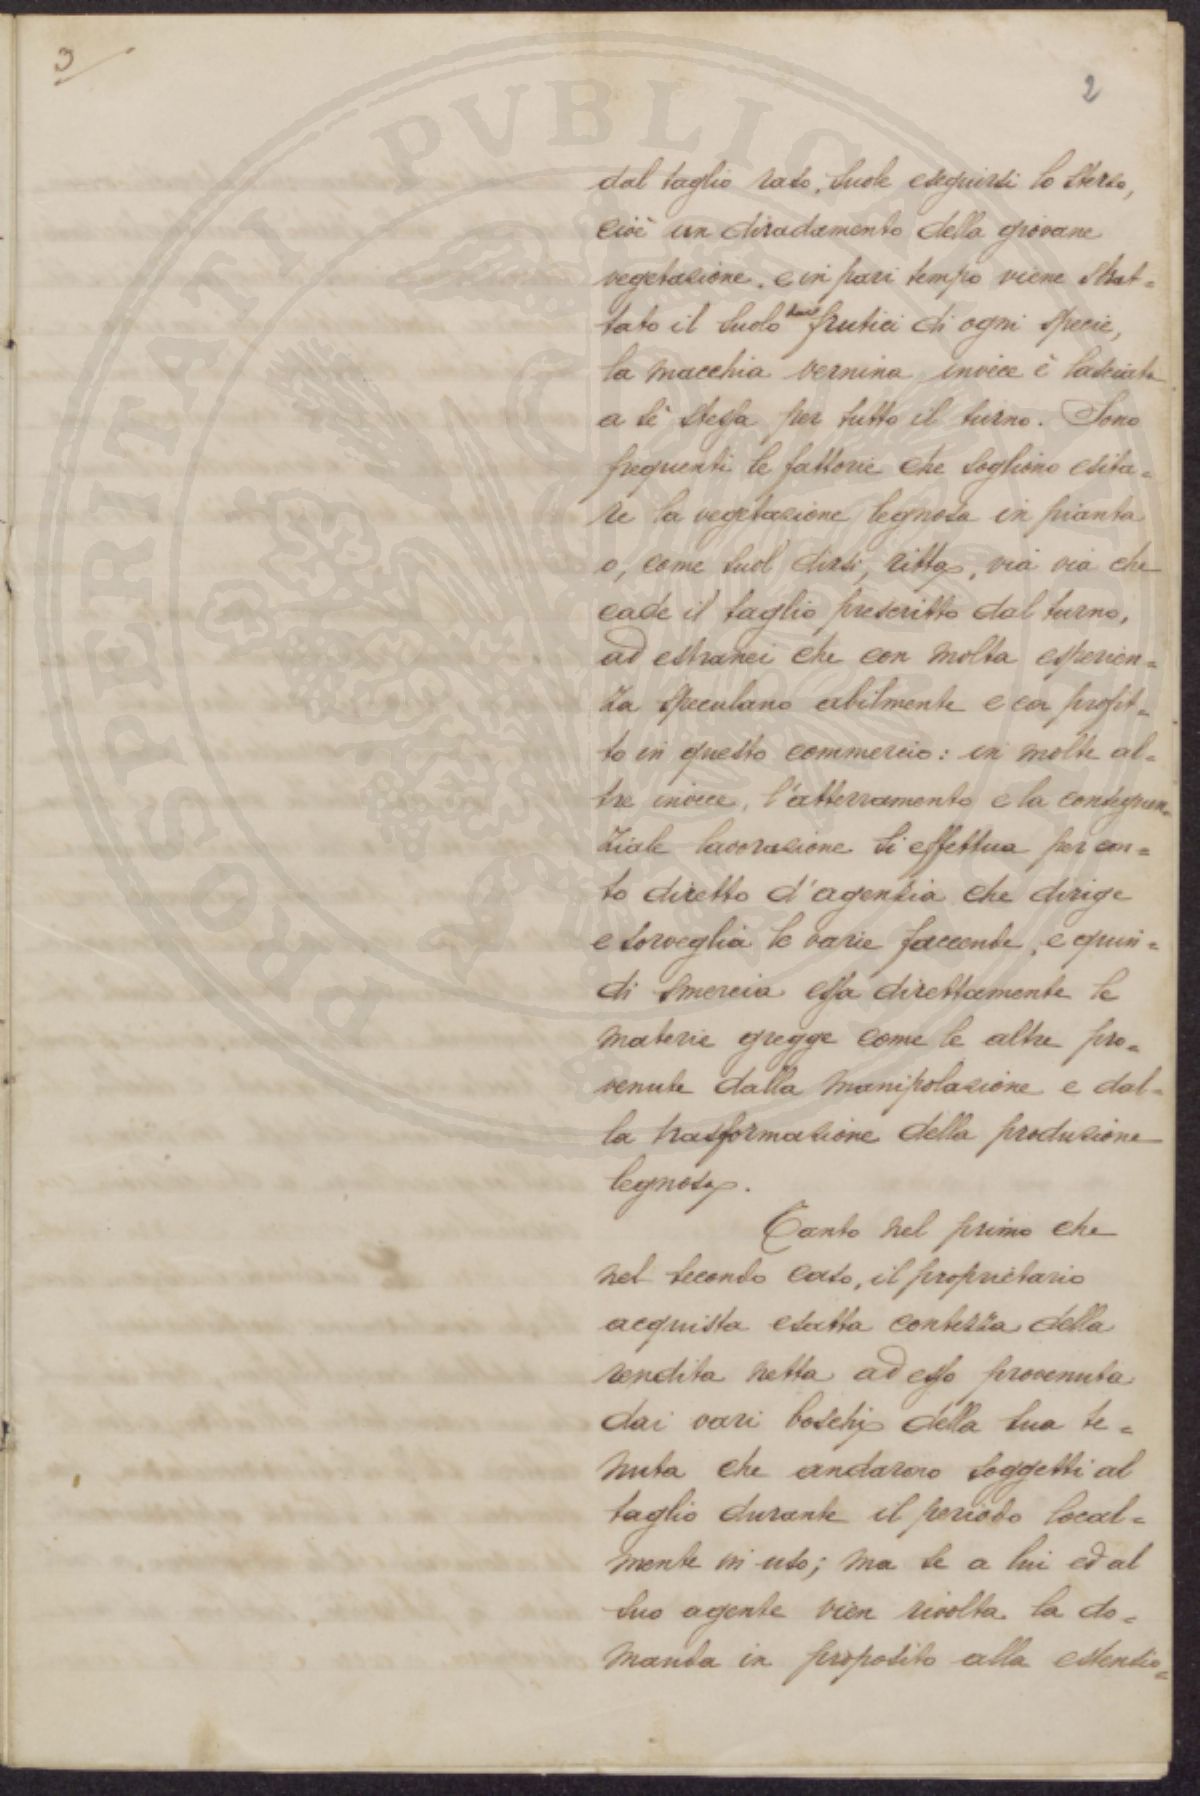 3
2
PROSPERITATI PVBLICAE
dal taglio raso, suole eseguirsi lo sterzo,
cioè un diradamento della giovane
vegetazione, e in pari tempo viene sbrat=
tato il suolo frutici di ogni specie,
la macchia vernina invece è lasciata
a sè stessa per tutto il turno. Sono
frequenti le fattorie che sogliono esita=
re la vegetazione legnosa in pianta
o, come suol dirsi, ritta, via via che
cade il taglio prescritto dal turno,
ad estranei che con molta esperien=
za speculano abilmente e con profit=
to in questo commercio: in molte al=
tre invece, l'atterramento e la conseguen=
ziale lavorazione si effettua per con=
to diretto d'agenzia che dirige
e sorveglia le varie faccende, e quin=
di smercia essa direttamente le
materie gregge come le altre pro=
venute dalla manipolazione e dal=
la trasformazione della produzione
legnosa.
Tanto nel primo che
nel secondo caso, il proprietario
acquista esatta contezza della
rendita netta ad esso provenuta
dai vari boschi della sua te=
nuta che andarono soggetti al
taglio durante il periodo local=
mente in uso; ma se a lui ed al
suo agente vien rivolta la do=
manda in proposito alla estensio=